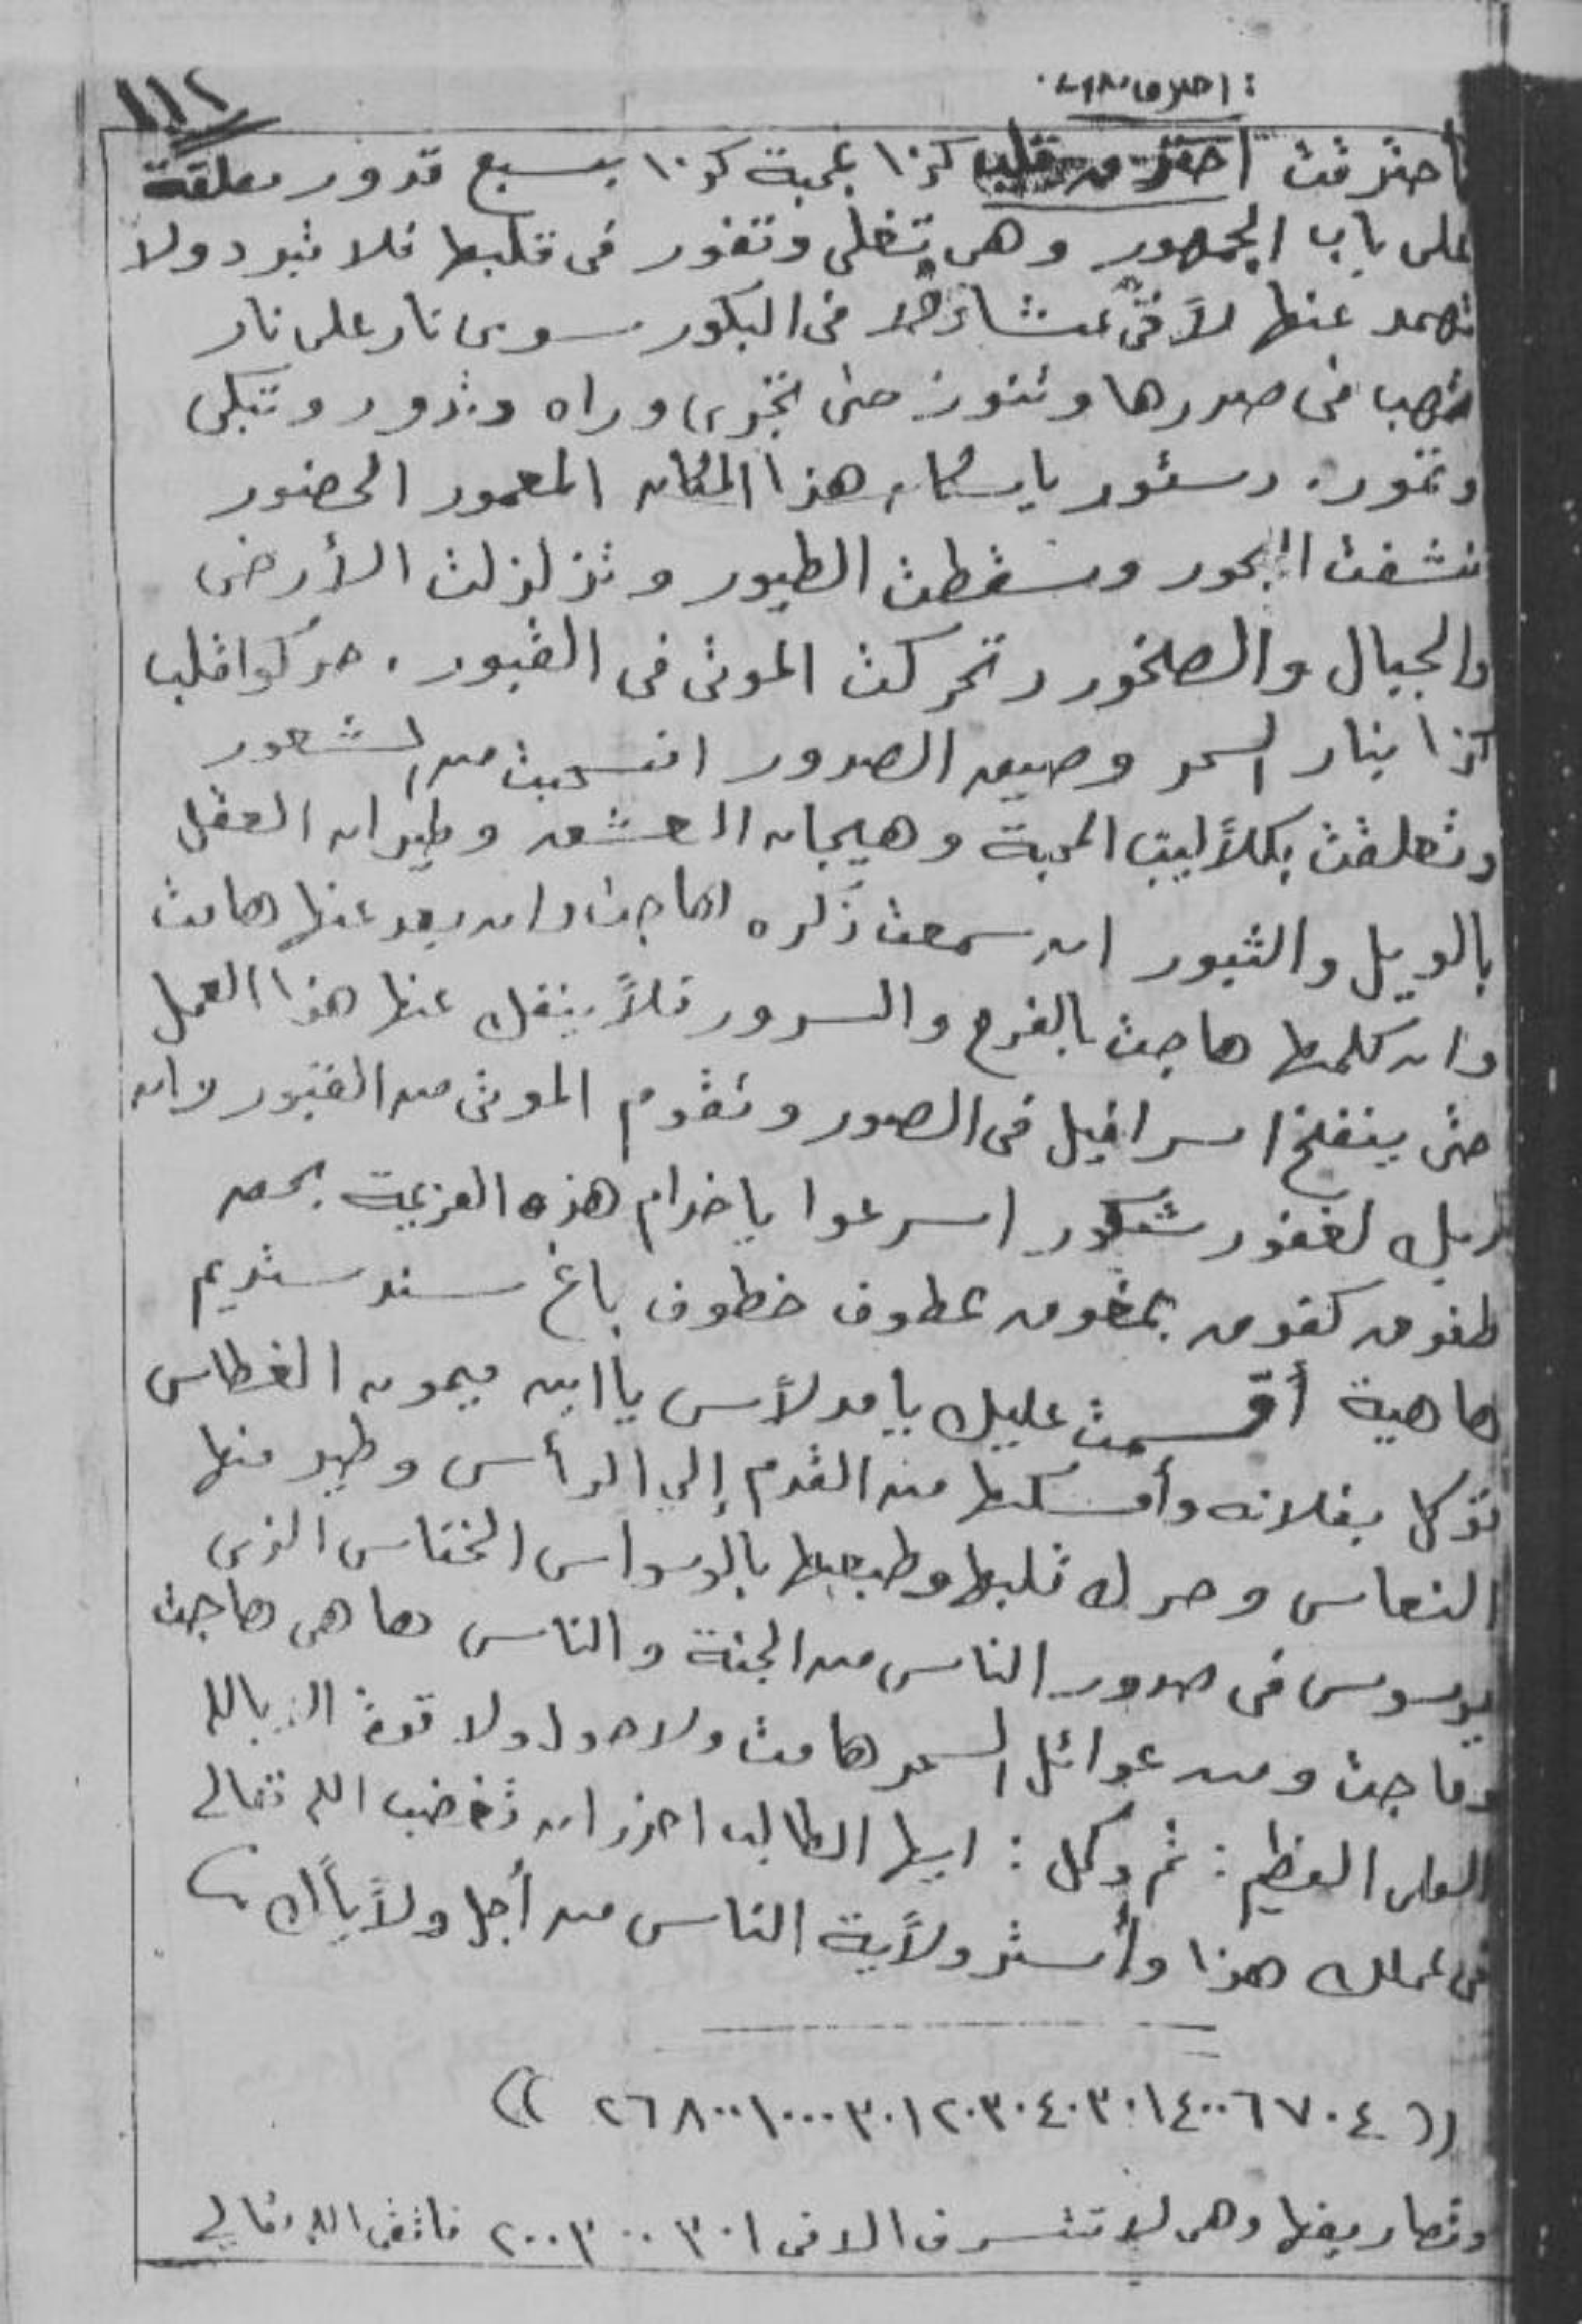 ١١٢
احترقت احترق قلب كذا بمحبة كذا بسبع قدور معلقة
على باب الجمهور وهى تغلى وتفور فى قلبها فلا تبرد ولا
تهمد عنها لا فى عشا ولا فى البكور سوى نار على نار
تهب فى صدرها وتنور حتى تجرى وراه وتدور وتبكى
وتمور. دستور يا سكان هذا المكان المعمور الحضور
نشفت البحور وسقطت الطيور وتزلزلت الأرض
والجبال والصخور وتحركت الموتى فى القبور. حركوا قلب
كذا بنار السحر وضيق الصدور انسحبت من الشعور
وتعلقت بكلاليب المحبة وهيجان العشق وطيران العقل
بالويل والثبور ان سمعت ذكره هاجت وان بعد عنها هامت
وان كلمها هاجت بالفرح والسرور فلا ينفك عنها هذا العمل
حتى ينفخ اسرافيل فى الصور وتقوم الموتى من القبور وان
ربك لغفور شكور اسرعوا يا خدام هذه العزيمة بحق
طفوق كفوق بمفوق عطوف خطوف باغ سند سنديم
هاهية أقسمت عليك يا مدلاس يا ابن ميمون الغطاس
توكل بفلانه وأمسكها من القدم إلى الرأس وطير منها
النعاس وحرك قلبها وطبعها بالوسواس الخناس الذى
يوسوس فى صدور الناس من الجنة والناس ها هى هاجت
وماجت ومن عوائل السحر هامت ولا حول ولا قوة الا بالله
العلى العظيم: ثم وكل: ايها الطالب احذر ان تغضب الله تعالى
فى عملك هذا وأستر ولاية الناس من أجل ولا ياك
(( ٢٦٨٠٠١٠٠٠٣٠١٢٠٣٠٤٠٣٠١٤٠٠٦٧٠٤ ))
وتصاريفها وهى لا تتسرف الا فى ٢٠٠٣٠٠٣٠١ فاتقى الله تعالى